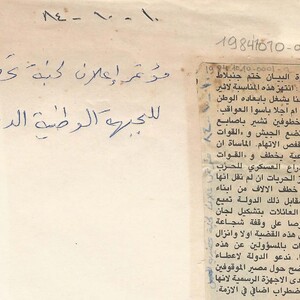 ١٠-١٠-٨٤
19841010-0
مؤتمر إعلان لجنة
للجبهة الوطنية الد
البيان ختم جنبلاط
انتهز هذه المناسبة لاثير
يشغل بابعاده الوطن
ام اجلا باسوا العواقب
خطوفين تشير باصابع
ضع الجيش و "القوات
قفص الاتهام. فاسماة
بخطف و "القوات
راع العسكري للحزب
الحريات ان لم نقل انها
خطف الالاف من ابناء
مقابل ذلك الدولة تميع
العائلات بتشكيل لجان
رصا على وقفة شجاعة
هذه القضية اولا وانزال
بالمسؤولين عن هذه
ندعو الدولة لاعطاء
ضح حول مصير الموقوفين
دى الاجهزة الرسمية لانها
ضطراب اضافي في الازمة.